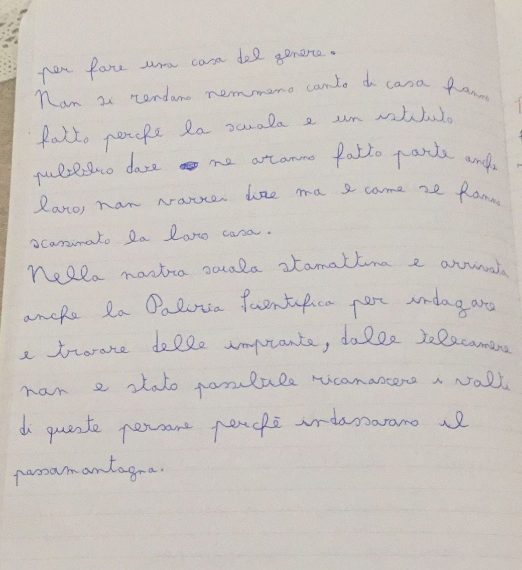 per fare una cosa del genere.
Non si rendono nemmeno conto di cosa hanno
fatto perché la scuola è un istituto
pubblico dove ne avranno fatto parte anche
loro, non vorrei dire ma è come se hanno
scassinato la loro casa.
Nella nostra scuola stamattina è arrivata
anche la Polizia Scientifica per indagare
e trovare delle impronte, dalle telecamere
non è stato possibile riconoscere i volti
di queste persone perchè indossavano il
passamontagna.